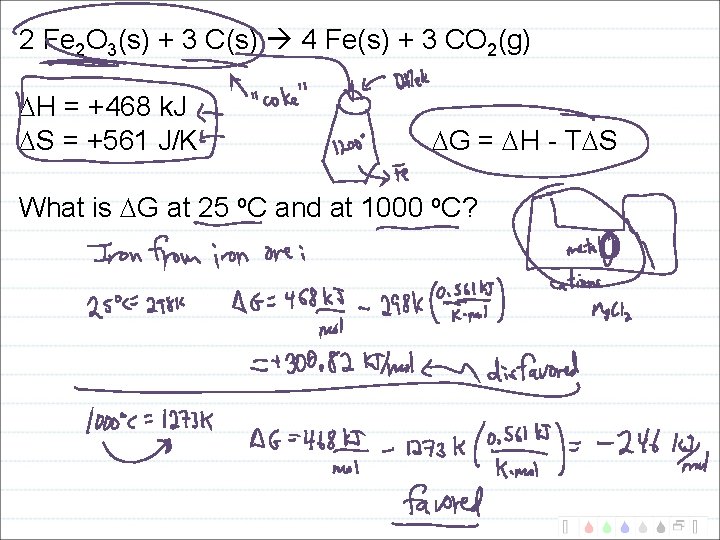 2 Fe2O3(s) + 3 C(s) → 4 Fe(s) + 3 CO2(g)
"coke"
ΔH = +468 kJ
ΔS = +561 J/K
1200°
Fe
ΔG = ΔH - TΔS
What is ΔG at 25 ºC and at 1000 ºC?
Iron from iron ore:
metal
cations
MgCl2
25°C = 298K ΔG = 468 kJ/mol - 298K (0.561 kJ/K·mol)
= +300.82 KJ/mol ← disfavored
1000°C = 1273K
ΔG = 468 kJ/mol - 1273 K (0.561 kJ/K·mol) = -246 kJ/mol
favored